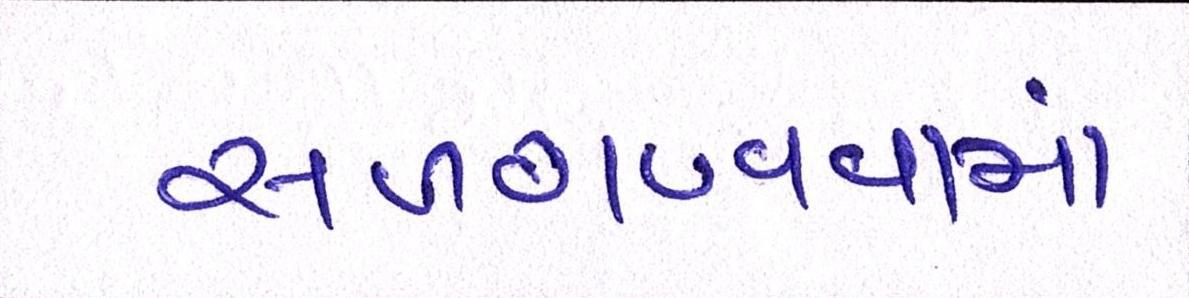 સળગાવવામાં